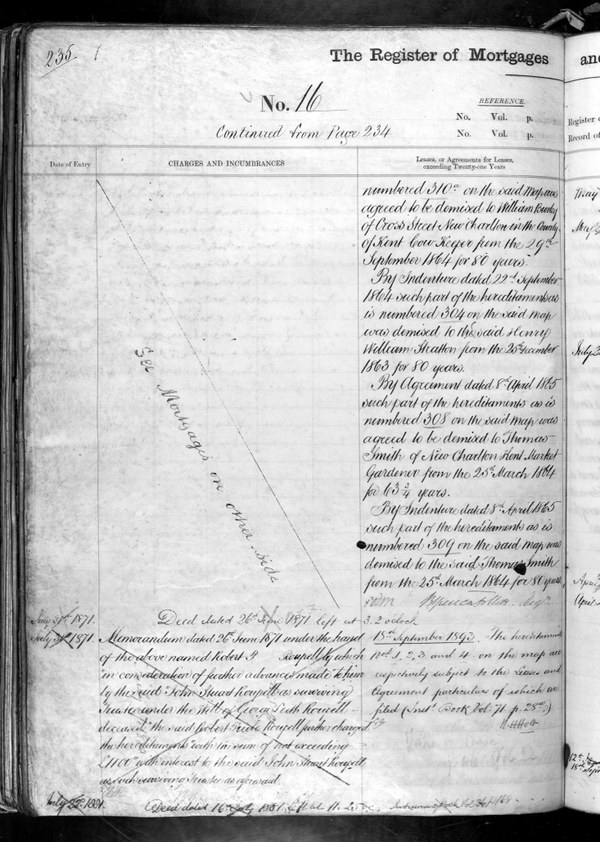 235
The Register of Mortgages and
No. 16
REFERENCE.
No. Vol. p.
No. Vol. p.
Continued from Page 234
Register o
Record of
Date of Entry
CHARGES AND INCUMBRANCES
Leases, or Agreements for Leases,
exceeding Twenty-one Years
numbered 310a on the said Map was
agreed to be demised to William
of Cross Street New Charlton in the County
of Kent Cow Keeper from the 29th
September 1864 for 80 years.
By Indenture dated 22nd September
1864 such part of the hereditaments as
is numbered 304 on the said map
was demised to the said Henry
William from the 25 December
1863 for 80 years.
By Agreement dated 8th April 1865
such part of the hereditaments as is
numbered 308 on the said map was
agreed to be demised to Thomas
Smith of New Charlton Kent Market
Gardener from the 25th March 1864
for 63 3/4 years.
By Indenture dated 8th April 1865
such part of the hereditaments as is
numbered 309 on the said map was
demised to the said Thomas Smith
from the 25th March 1864 for 80 years
See Mortgages on other side
1871.
Deed dated 26th June 1871 left at 3.2 oclock
July 1871.
Memorandum dated 26th June 1871 under the hand
of the above named Robert P Roupell by which
in consideration of further advances made to him
by the said John Stuart Roupell as surviving
Trustee under the Will of George Roupell
deceased the said Robert Roupell further charged
the hereditaments with sum of not exceeding
£1100 with interest to the said John Stuart Roupell
as such surviving Trustee as aforesaid
18th September 1893. The hereditaments
Nos 1, 2, 3 and 4 on the map are
respectively subject to the Leases and
Agreement particulars of which are
filed (Inst. Book Vol. 71 p. 285)
July 1881.
Deed dated 16th July 1881 left at 11.25